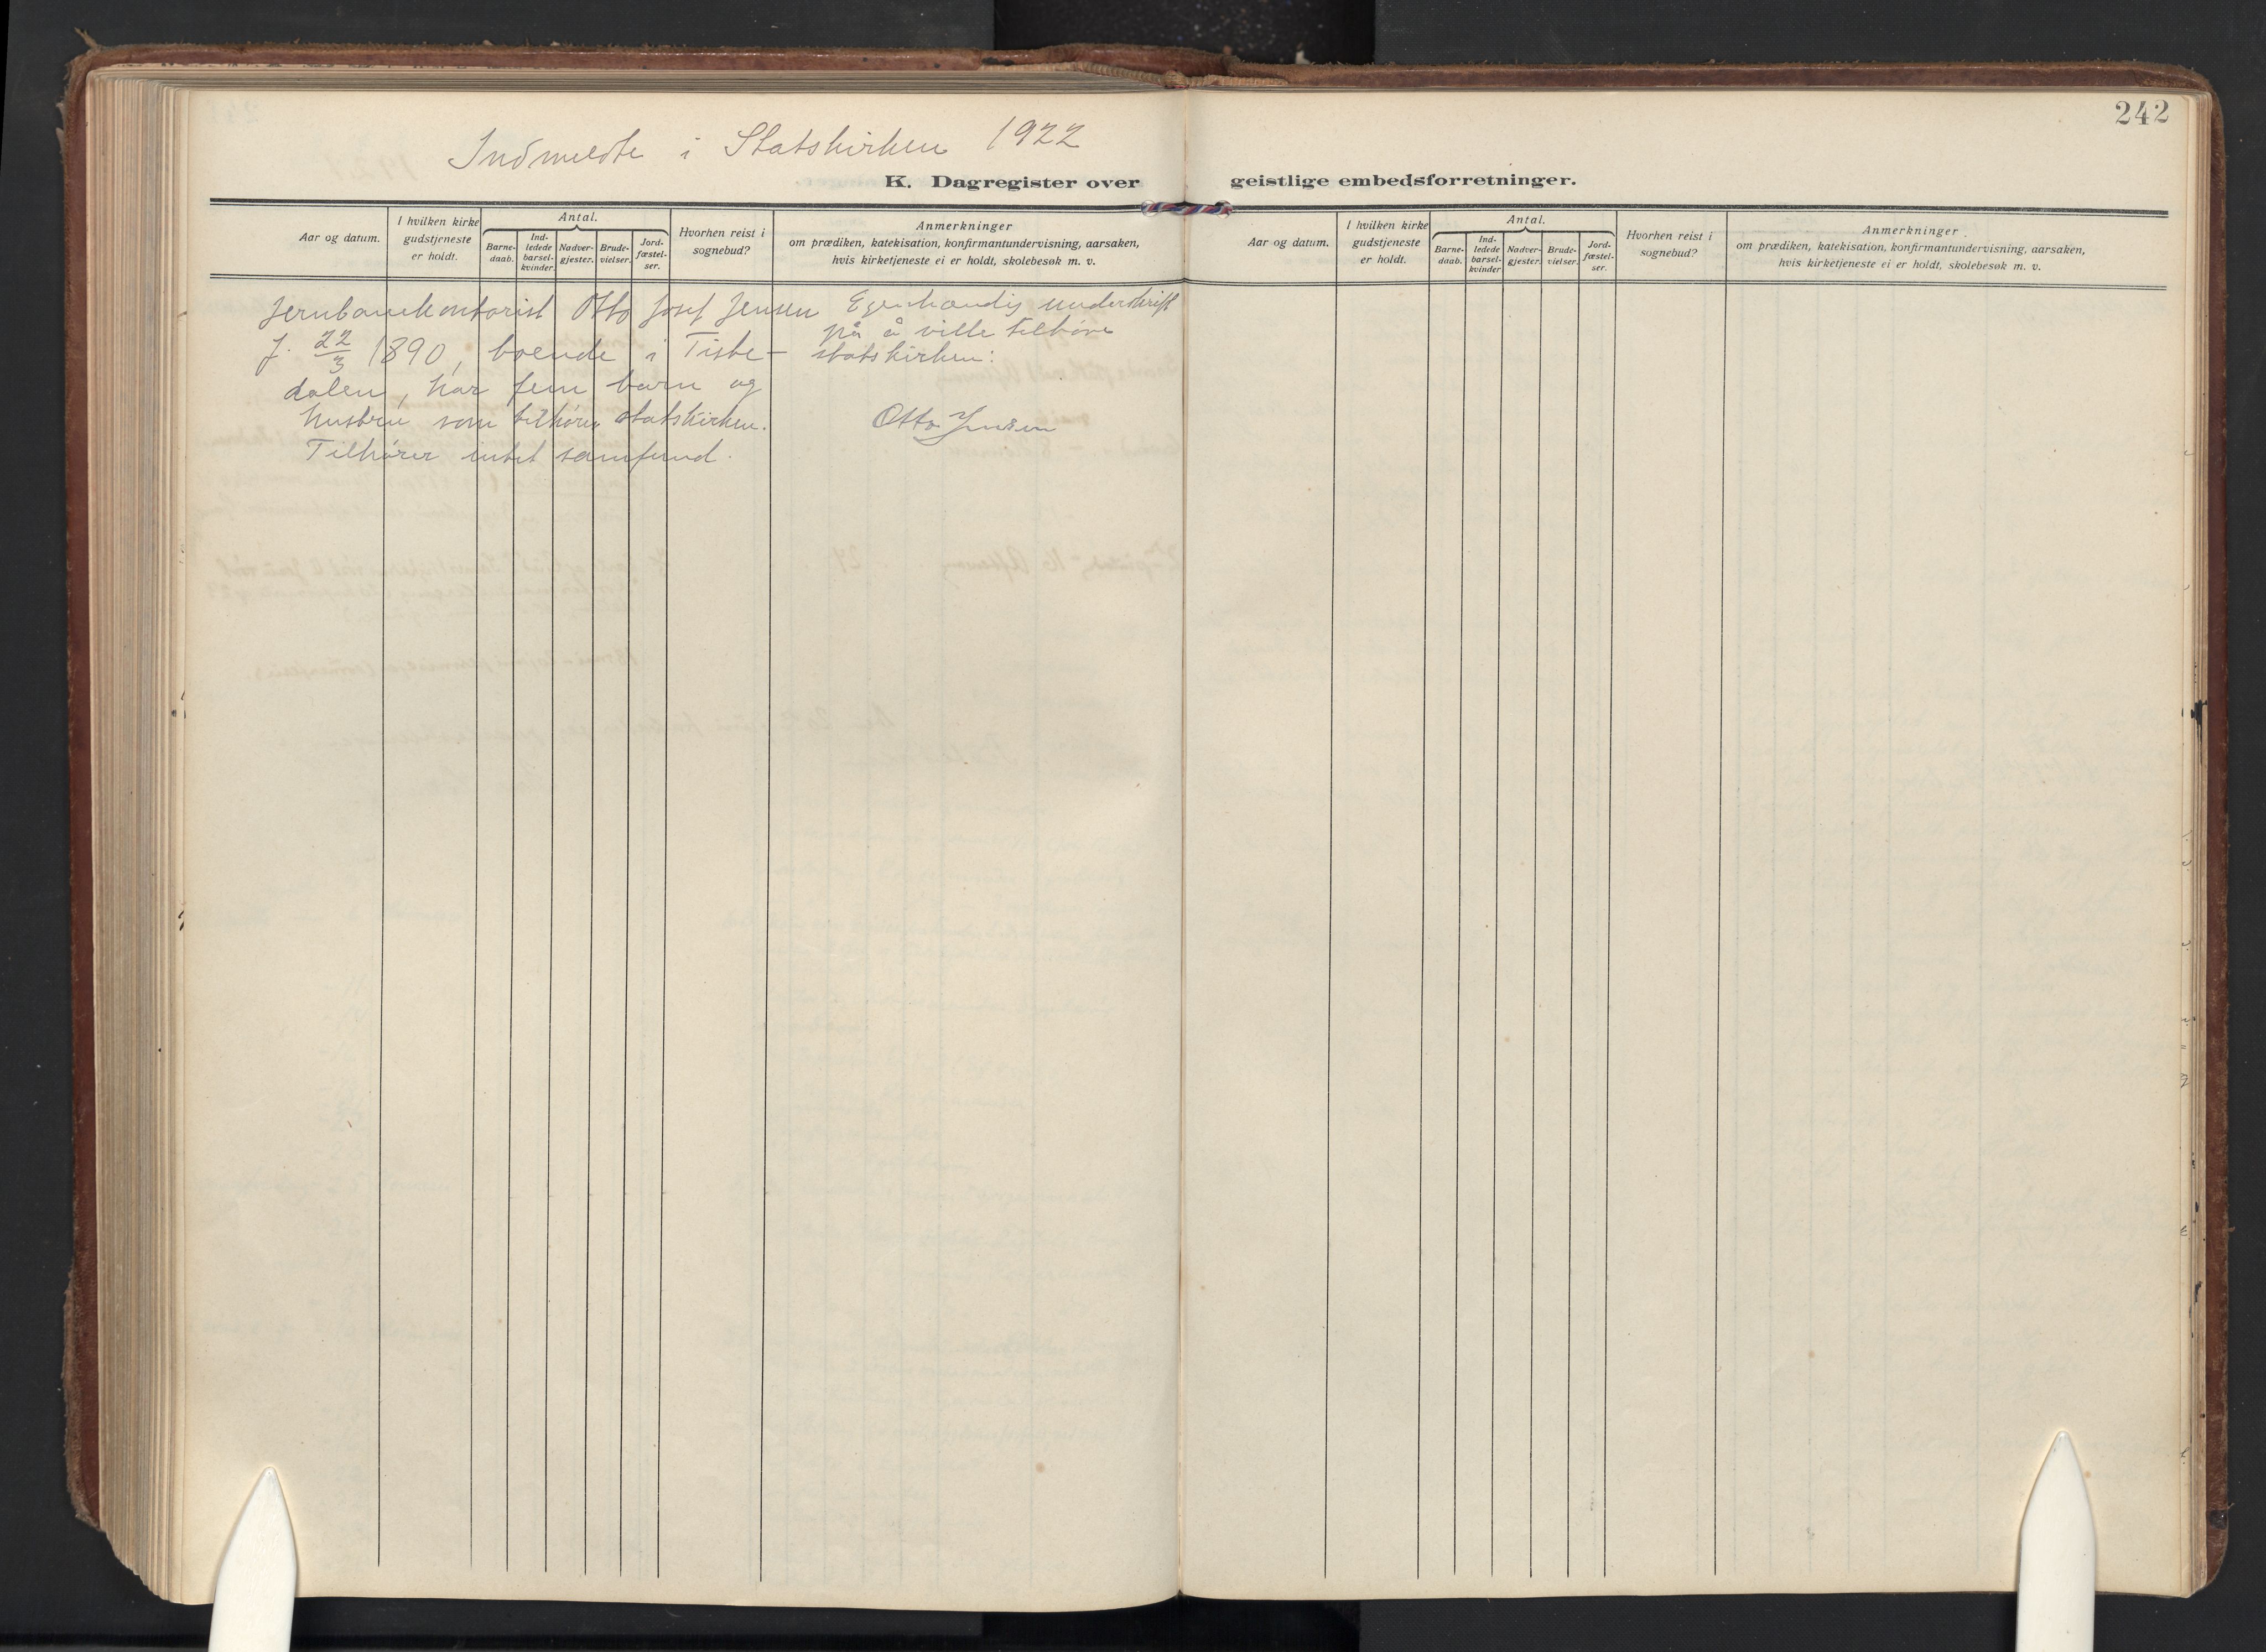 242
Indmeldte i Statskirken 1922
K. Dagregister over geistlige embedsforretninger.
Aar og datum.
I hvilken kirke
gudstjeneste
er holdt.
Antal.
Barne-
daab.
Ind-
ledede
barsel-
kvinder.
Nadver-
gjester.
Brude-
vielser.
Jord-
fæstel-
ser.
Hvorhen reist i
sognebud?
Anmerkninger
om prædiken, katekisation, konfirmantundervisning, aarsaken,
hvis kirketjeneste ei er holdt, skolebesøk m. v.
Jernbanekontorist Otto Josef Jensen
f. 22/3 1890, boende i Tiste-
dalen, har fem barn og
hustru som tilhører statskirken.
Tilhører intet samfund.
Egenhændig underskrift
på å ville tilhøre
statskirken:
Otto Jensen
Aar og datum.
I hvilken kirke
gudstjeneste
er holdt.
Antal.
Barne-
daab.
Ind-
ledede
barsel-
kvinder
Nadver-
gjester.
Brude-
vielser.
Jord-
fæstel-
ser.
Hvorhen reist i
sognebud?
Anmerkninger
om prædiken, katekisation, konfirmantundervisning, aarsaken,
hvis kirketjeneste ei er holdt, skolebesøk m. v.